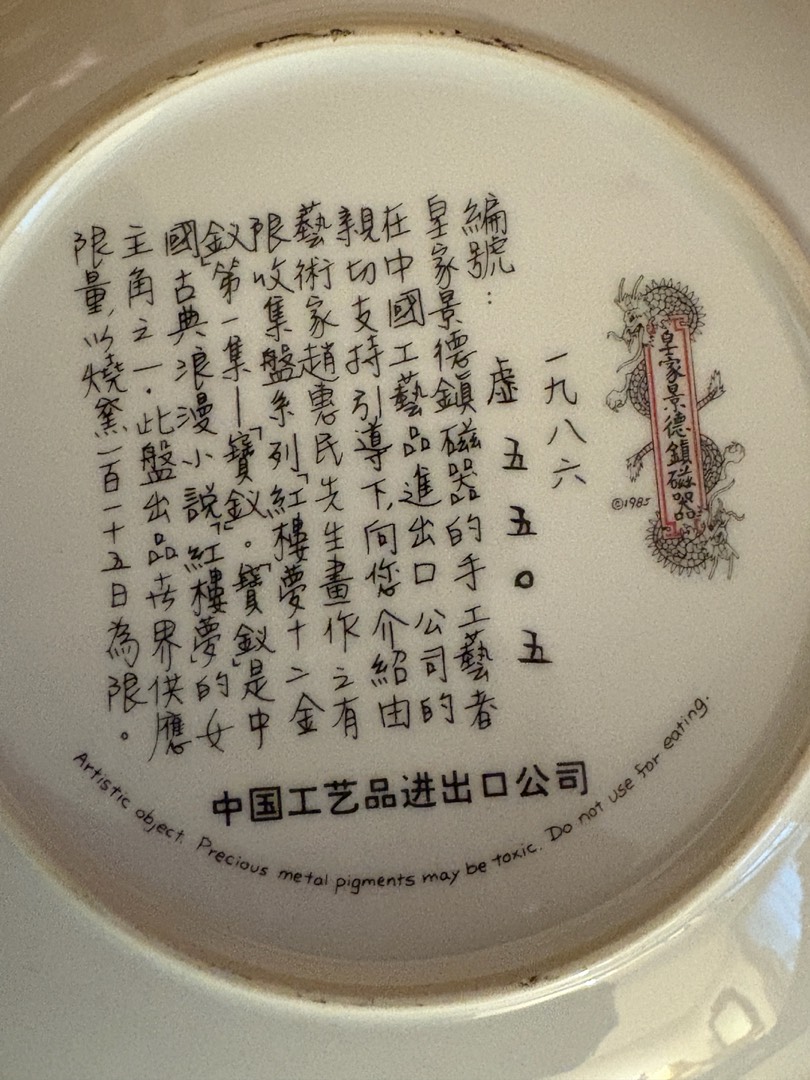 皇家景德鎮磁器
©1985
一九八六
編號：虚五五〇五
皇家景德鎮磁器的手工藝者
在中國工藝品進出口公司的
親切支持引導下,向您介紹由
藝術家趙惠民先生畫作之有
限收集盤系列「紅樓夢十二金
釵」第一集—「寶釵」。「寶釵」是中
國古典浪漫小說「紅樓夢」的女
主角之一.此盤出品世界供應
限量,以燒窯一百一十五日為限。
中国工艺品进出口公司
Artistic object. Precious metal pigments may be toxic. Do not use for eating.